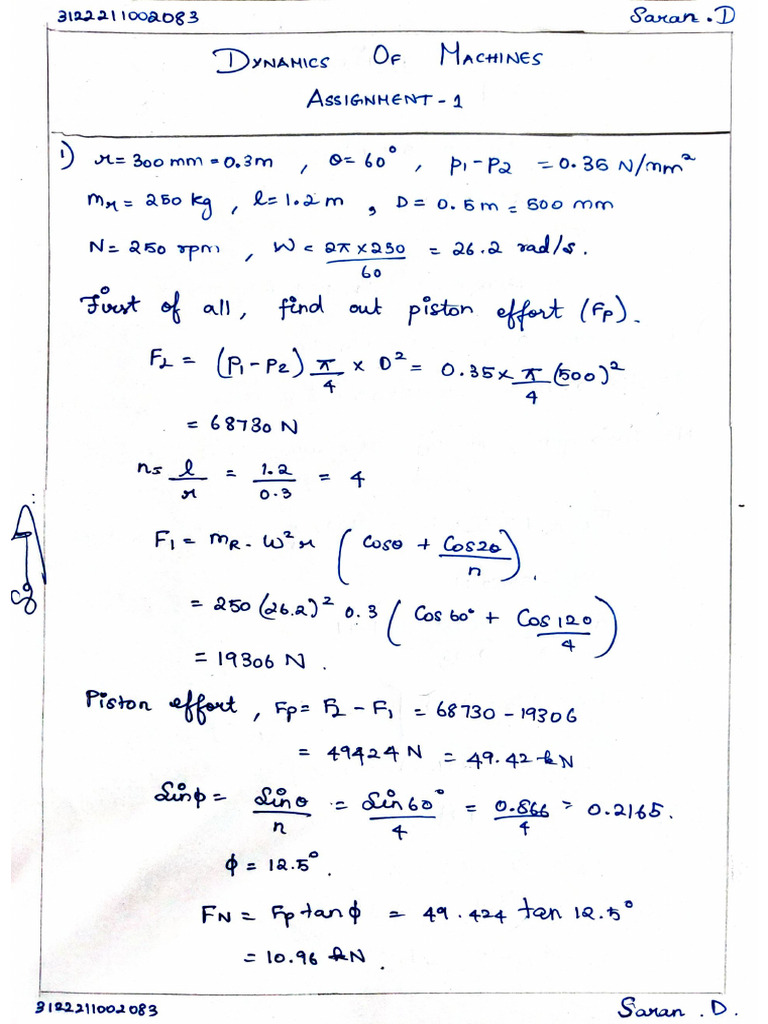 3122211002083 Saran . D
DYNAMICS OF MACHINES
ASSIGNMENT - 1
1) r = 300 mm = 0.3m , θ = 60° , P1 - P2 = 0.35 N/mm²
mR = 250 kg , l = 1.2 m , D = 0.5m = 500 mm
N = 250 rpm , W = 2π × 250 / 60 = 26.2 rad/s.
First of all, find out piston effort (Fp).
FL = (P1 - P2) π/4 × D² = 0.35 × π/4 (500)²
= 68730 N
n = l/r = 1.2/0.3 = 4
FI = mR . W² r ( Cosθ + Cos2θ/n ) .
= 250 (26.2)² 0.3 ( Cos 60° + Cos 120/4 )
= 19306 N .
Piston effort , Fp = FL - FI = 68730 - 19306
= 49424 N = 49.42 kN
Sinφ = Sinθ/n = Sin60°/4 = 0.866/4 = 0.2165.
φ = 12.5° .
FN = Fp tanφ = 49.424 tan 12.5°
= 10.96 kN .
3122211002083 Saran . D.